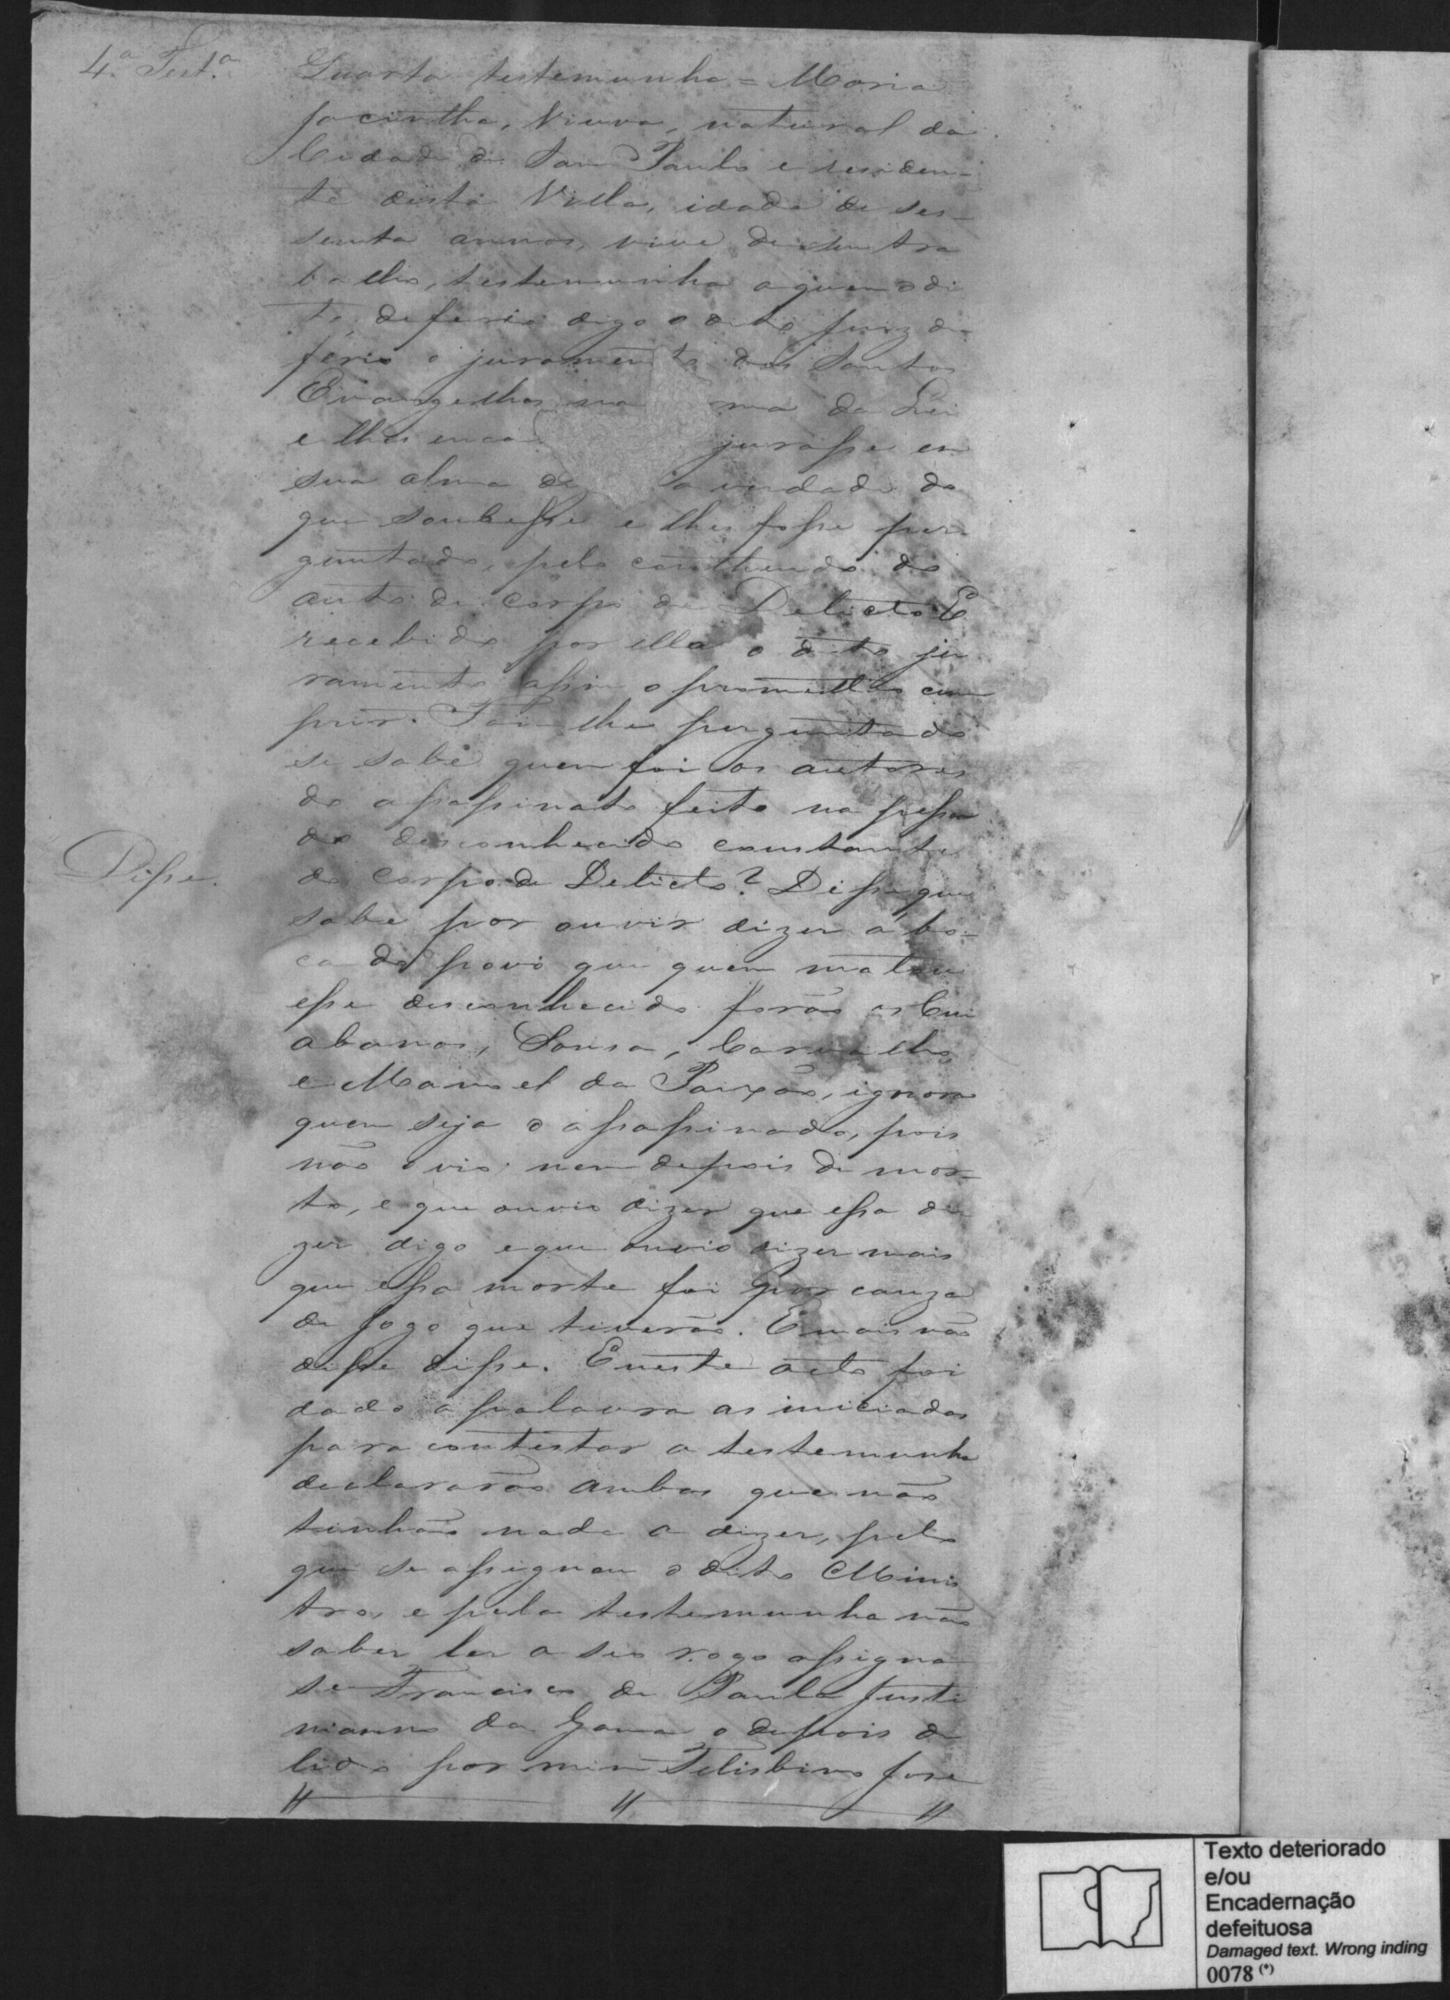 4.ª Test.ª
Quarta testemunha = Maria
Jacintha, Viuva, natural da
Cidade de Sam Paulo e residen-
te desta Villa, idade de ses-
senta annos, vive de seu tra
balho, testemunha a quem o di
to deferio digo o dito Juiz de
ferio o juramento dos Santos
Evangelhos na ma da Lei
e lhes enca jurasse em
sua alma de a verdade do
que soubesse e lhes fosse per
guntado, pelo conthendo do
auto de corpo de Delicto E
recebido por ella o dito ju
ramento assim o prometteo cum
prir. Foi lhe perguntado
se sabe quem foi os autores
do assassinato feito na pesso
do desconhecido constante
Disse.
do corpo de Delicto? Disse que
sabe por ouvir dizer a bo-
ca do povo que quem matou
esse desconhecido forão os Cui
abanos, Sousa, Carvalho,
e Manoel da Paixão, ignora
quem seja o assassinado, pois
não o vio nem depois de mor-
to, e que ouvio dizer que essa di
zer digo e que ouvio dizer mais
que essa morte foi por cauza
de jogo que tiverão. E mais não
disse disse. E neste acto foi
dado a palavra as iniciados
para contestar a testemunha
declararão ambos que não
tinhão nada a dizer, pelo
que se assignou o dito Minis
tro, e pela testemunha não
saber ler a seo rogo assigna
se Francisco de Paula Justi
nianno da Gama o depois de
lido por mim Felisbino Jose
Texto deteriorado
e/ou
Encadernação
defeituosa
Damaged text. Wrong inding
0078 (*)